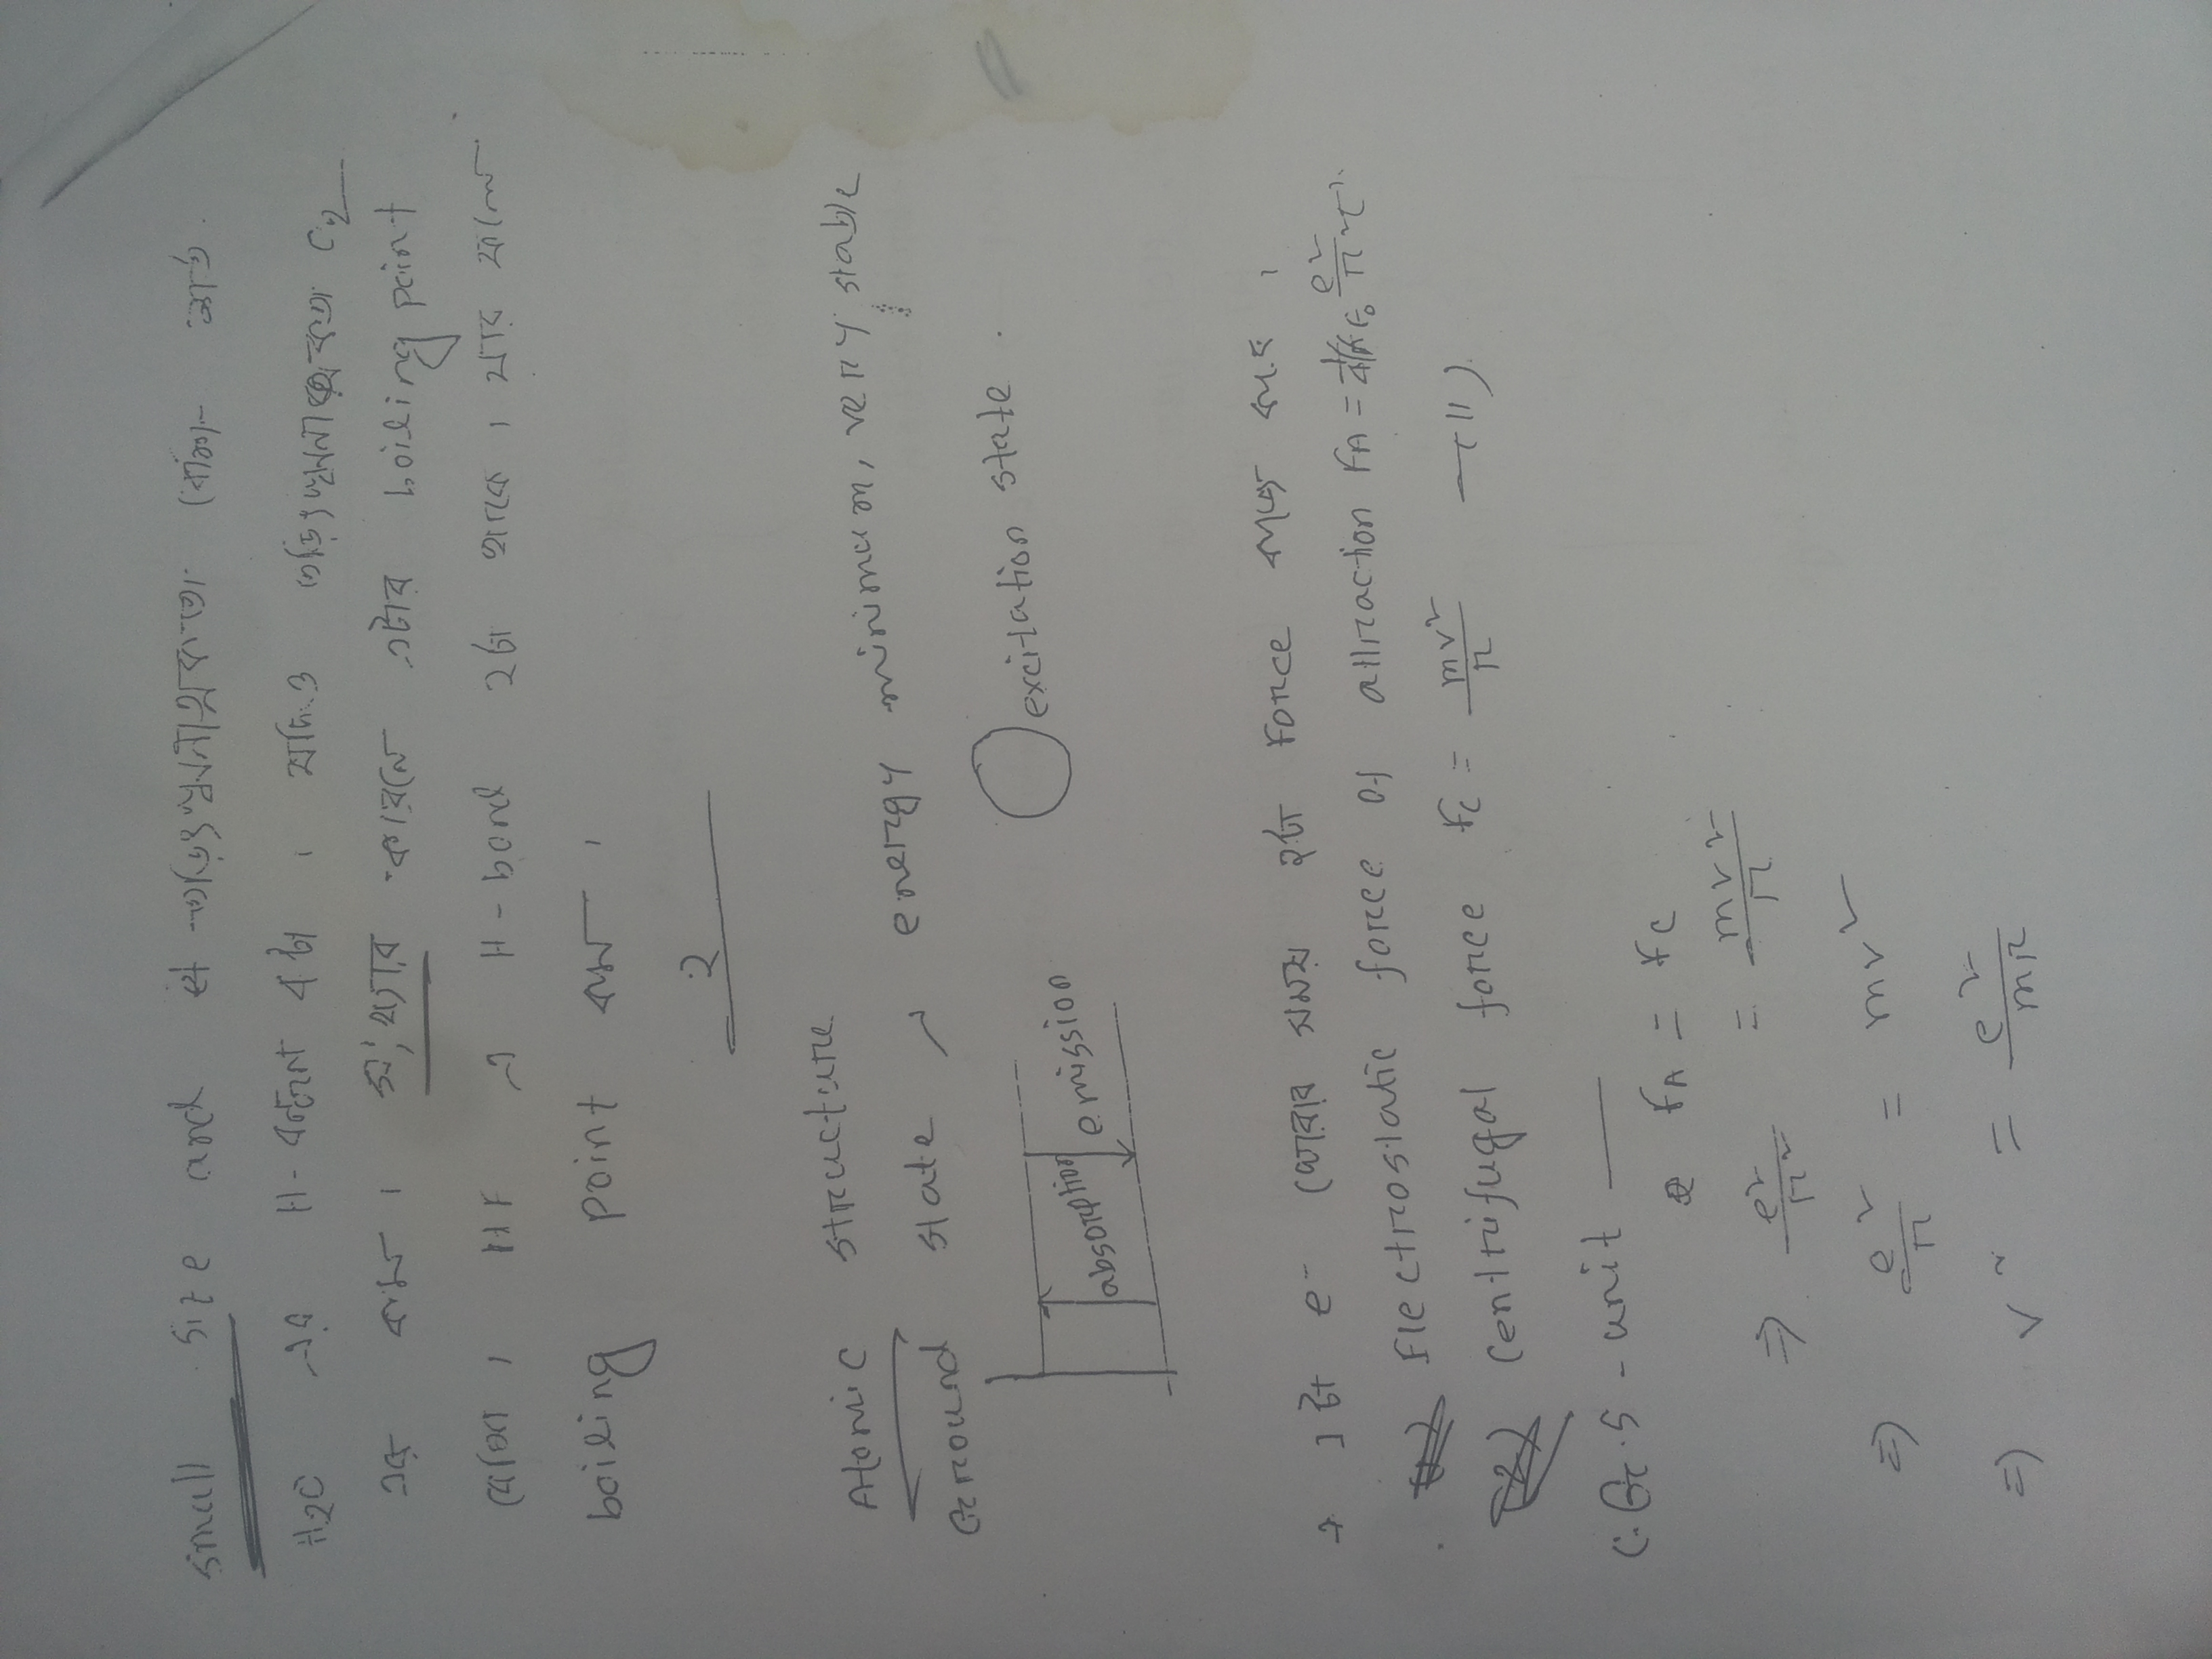 small size and তড়িৎঋণাত্মকতা বেশি
H2O এর H-বন্ধন ৪টা । যদিও তড়িৎঋণাত্মকতা
এর কম । সংখ্যার কারনে এটার boiling point
বেশি । HF এ H-bond ২টা থাকে । যার ফলে
boiling point কম ।
2
Atomic structure
Ground state → energy minimum, very stable
excitation state .
absorption emission
→ ১টা e- ঘোরার সময় ২টা Force কাজ করে ।
Electrostatic force of attraction FA = 1/4πε₀ e²/r²
Centrifugal force Fc = mv²/r —(II)
C.G.S - unit —
FA = FC
⇒ e²/r² = mv²/r
⇒ e²/r = mv²
⇒ v² = e²/mr